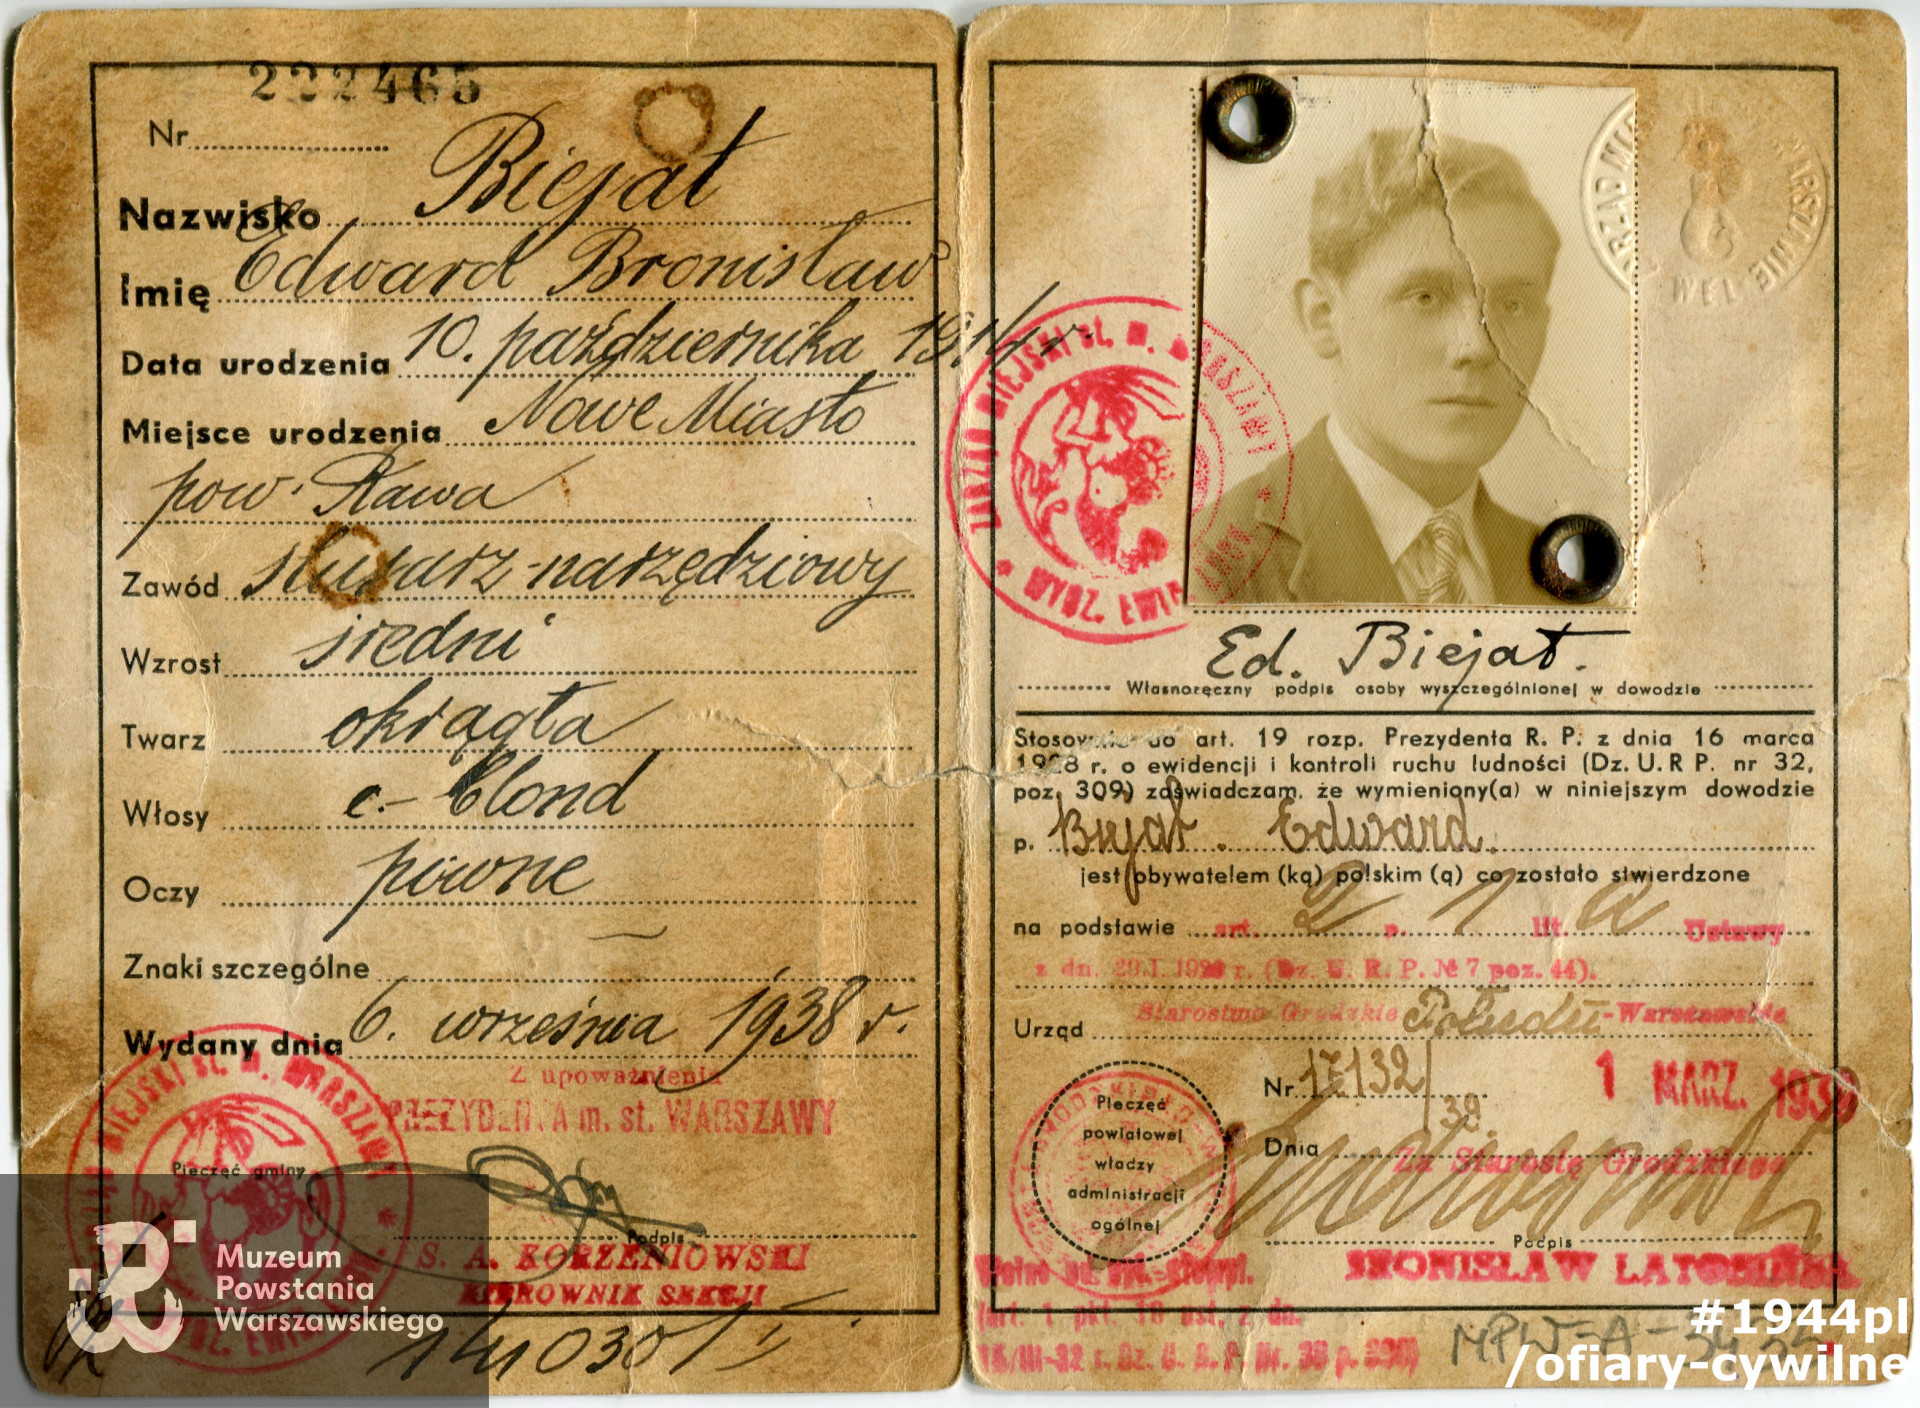 222465
Nr
Nazwisko Biejat
Imię Edward Bronisław
Data urodzenia 10. października 1914 r.
Miejsce urodzenia Nowe Miasto
pow. Rawa
Zawód ślusarz-narzędziowy
Wzrost średni
Twarz okrągła
Włosy c.-blond
Oczy piwne
Znaki szczególne —
Wydany dnia 6. września 1938 r.
Z upoważnienia
PREZYDENTA m. st. WARSZAWY
Pieczęć gminy
Podpis
S. A. KORZENIOWSKI
KIEROWNIK SEKCJI
ZARZĄD MIEJSKI st. m. WARSZAWY
WYDZ. EWID.
Muzeum
Powstania
Warszawskiego
ZARZĄD MIEJSKI st. m. WARSZAWY
WYDZ. EWID. LUDN.
Ed. Biejat.
Własnoręczny podpis osoby wyszczególnionej w dowodzie
Stosownie do art. 19 rozp. Prezydenta R. P. z dnia 16 marca
1928 r. o ewidencji i kontroli ruchu ludności (Dz. U. R P. nr 32,
poz. 309) zaświadczam, że wymieniony(a) w niniejszym dowodzie
p. Biejat Edward.
jest obywatelem (ką) polskim (ą) co zostało stwierdzone
na podstawie art. 2 p. 1 lit. a Ustawy
z dn. 20.I.1920 r. (Dz. U. R. P. № 7 poz. 44).
Urząd Starostwo Grodzkie Połudn.-Warszawskie
Nr 17132/39
1 MARZ. 1939
Dnia
Pieczęć
powiatowej
władzy
administracji
ogólnej
Za Starostę Grodzkiego
Podpis
BRONISŁAW
Wolne od opł. stempl.
(art. 1 pkt. 10 ust. z dn.
MPW-A-
#1944pl
/ofiary-cywilne